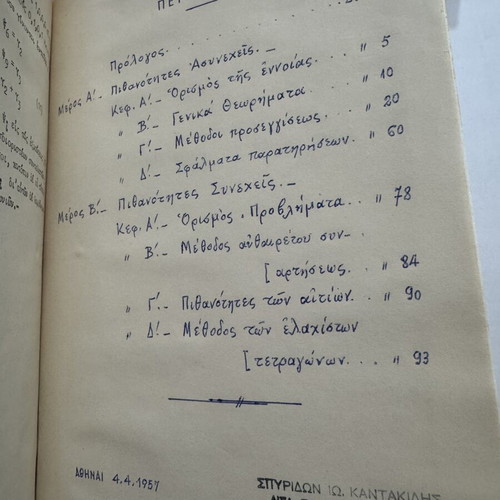 Πρόλογος . . . . . . . . . . .
Μέρος Α'. Πιθανότητες Ἀσυνεχεῖς. —
Κεφ. Α'. – Ὁρισμὸς τῆς ἐννοίας. . . " 5
" Β'. – Γενικὰ Θεωρήματα. . . . " 10
" Γ'. – Μέθοδοι προσεγγίσεως. . . " 20
" Δ'. – Σφάλματα παρατηρήσεων. . " 60
Μέρος Β'. – Πιθανότητες Συνεχεῖς. –
Κεφ. Α'. – Ὁρισμὸς, Προβλήματα. . . " 78
" Β'. – Μέθοδος αὐθαιρέτου συν–
[ αρτήσεως. . " 84
" Γ'. – Πιθανότητες τῶν αἰτίων. . " 90
" Δ'. – Μέθοδος τῶν ἐλαχίστων
[ τετραγώνων. . . " 93
ΑΘΗΝΑΙ 4.4.1957
ΣΠΥΡΙΔΩΝ ΙΩ. ΚΑΝΤΑΚΙΔΗΣ